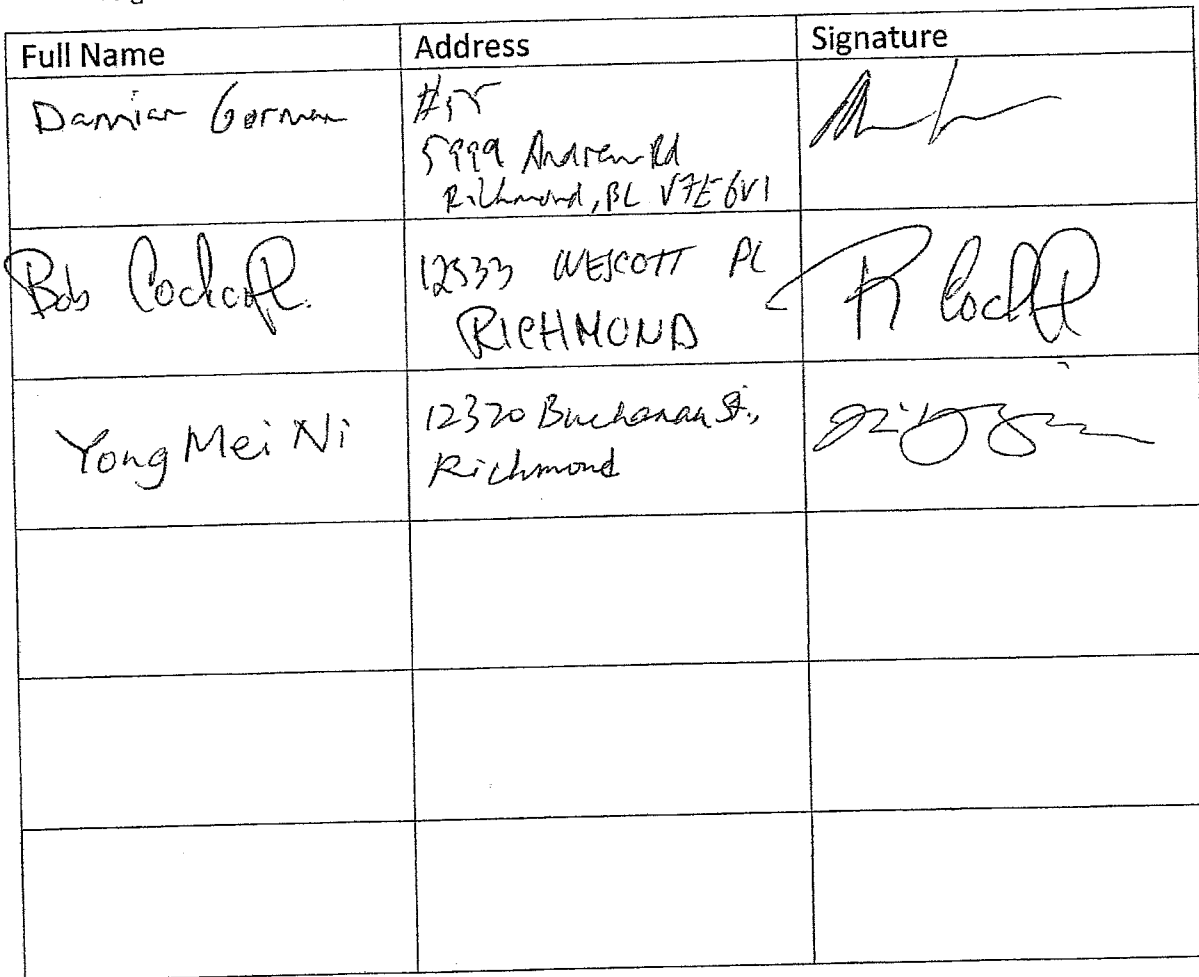 Full Name Address Signature
Damian Gorman
#55
5999 Andrews Rd
Richmond, BC V7E 6V1
Bob
12533 WESCOTT PL
RICHMOND
Yong Mei Ni
12320 Buchanan St.,
Richmond